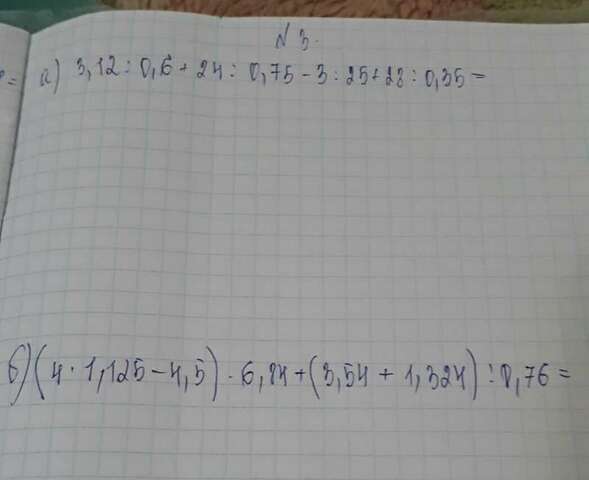 № 3.
а) 3,12 : 0,6 + 24 : 0,75 - 3 : 25 + 28 : 0,35 =
б) (4 · 1,125 - 4,5) · 6,84 + (3,54 + 1,324) : 0,76 =